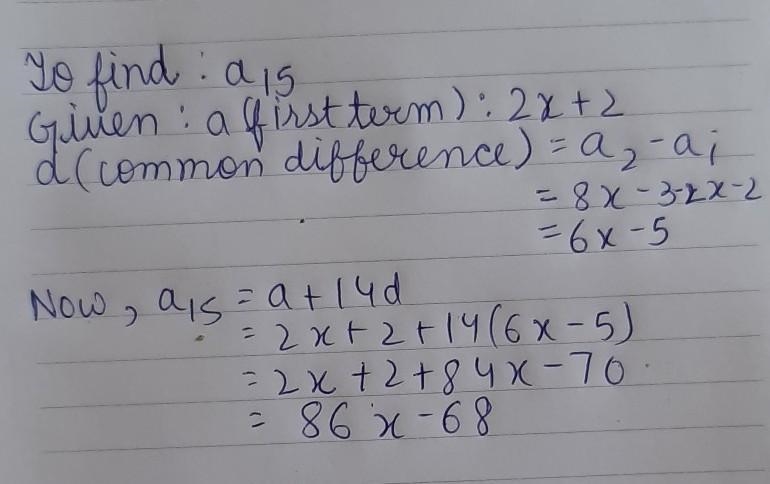 To find : a₁₅
Given : a (first term) : 2x + 2
d (common difference) = a₂ - a₁
= 8x - 3 - 2x - 2
= 6x - 5
Now, a₁₅ = a + 14d
= 2x + 2 + 14(6x - 5)
= 2x + 2 + 84x - 70
= 86x - 68